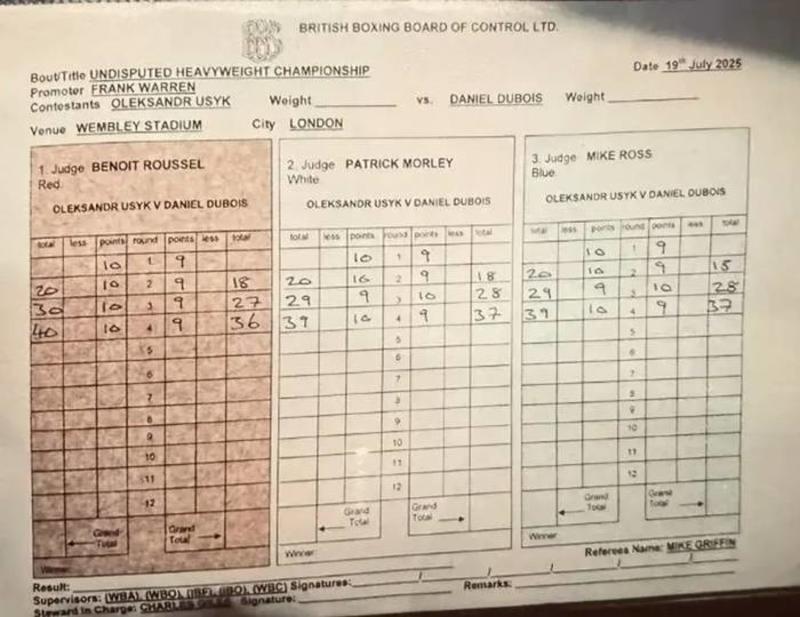 BRITISH BOXING BOARD OF CONTROL LTD.
Bout/Title UNDISPUTED HEAVYWEIGHT CHAMPIONSHIP Date 19th July 2025
Promoter FRANK WARREN
Contestants OLEKSANDR USYK Weight vs. DANIEL DUBOIS Weight
Venue WEMBLEY STADIUM City LONDON
1. Judge BENOIT ROUSSEL
Red
OLEKSANDR USYK V DANIEL DUBOIS
total less points round points less total
10 1 9
20 10 2 9 18
30 10 3 9 27
40 10 4 9 36
5
6
7
8
9
10
11
12
Grand Total Grand Total
Winner
2. Judge PATRICK MORLEY
White
OLEKSANDR USYK V DANIEL DUBOIS
total less points round points less total
10 1 9
20 10 2 9 18
29 9 3 10 28
39 10 4 9 37
5
6
7
8
9
10
11
12
Grand Total Grand Total
Winner
3. Judge MIKE ROSS
Blue
OLEKSANDR USYK V DANIEL DUBOIS
total less points round points less total
10 1 9
20 10 2 9 18
29 9 3 10 28
39 10 4 9 37
5
6
7
8
9
10
11
12
Grand Total Grand Total
Winner
Referees Name: MIKE GRIFFIN
Result: / / / /
Supervisors: (WBA), (WBO), (IBF), (IBO), (WBC) Signatures: Remarks:
Steward in Charge: CHARLES Signature: